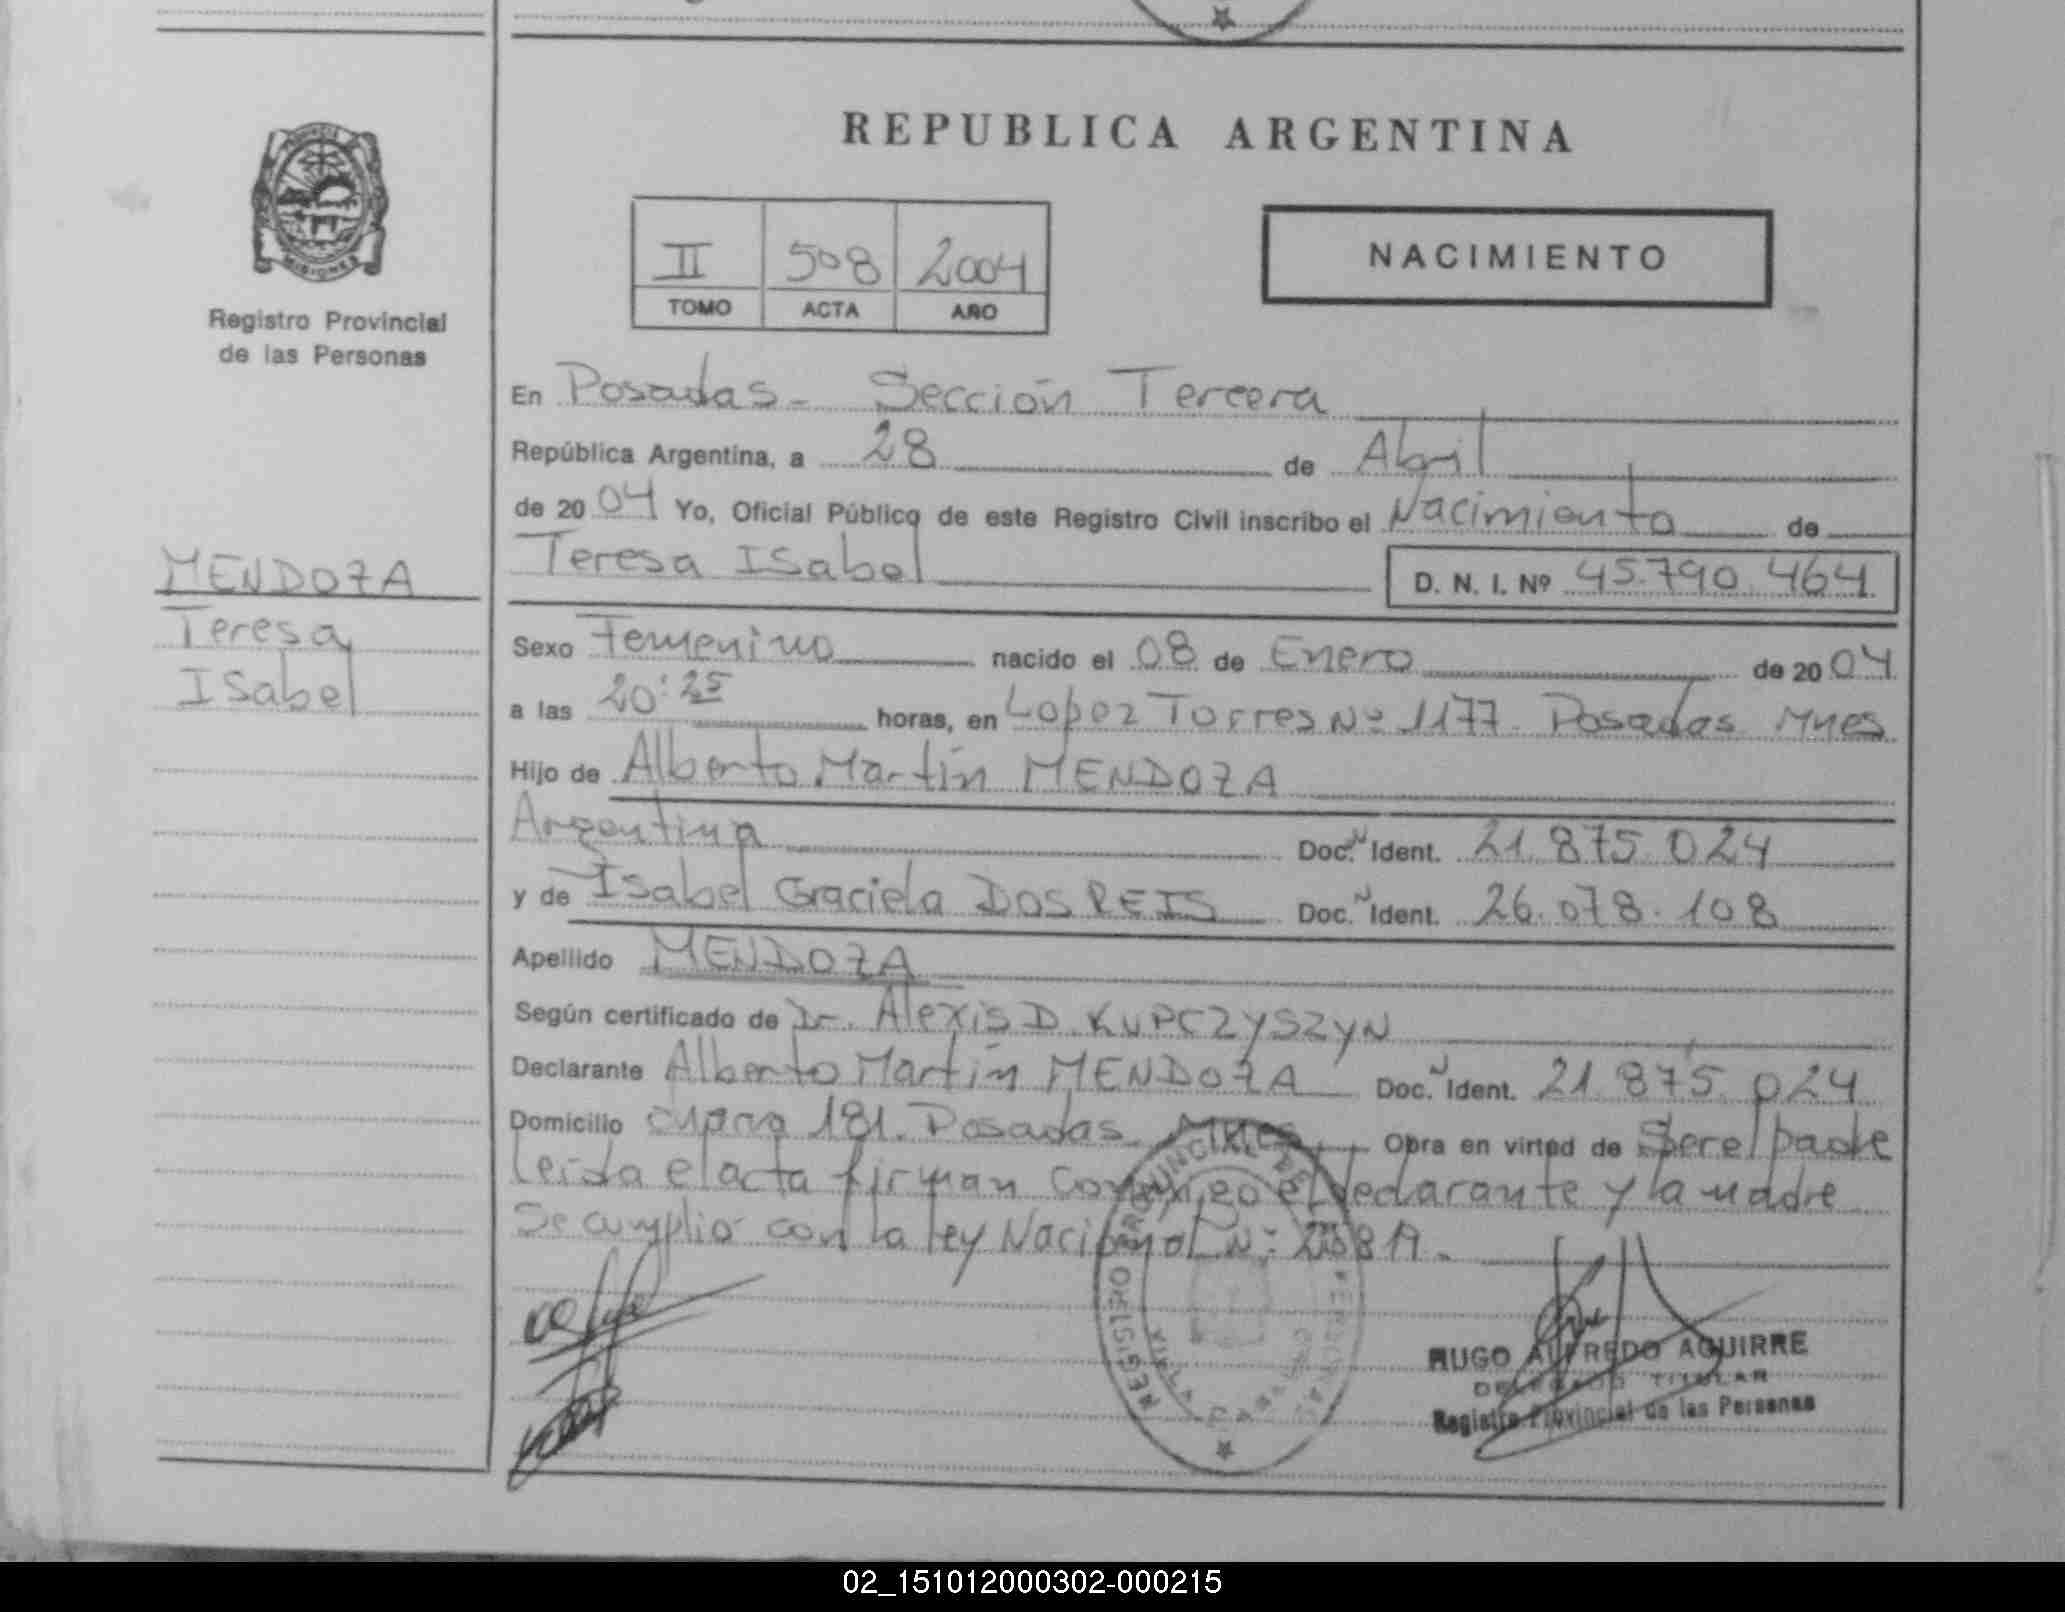 REPUBLICA ARGENTINA
II 508 2004
TOMO ACTA AÑO
NACIMIENTO
MISIONES
Registro Provincial
de las Personas
MENDOZA
Teresa
Isabel
En Posadas - Sección Tercera
República Argentina, a 28 de Abril
de 2004 Yo, Oficial Público de este Registro Civil inscribo el Nacimiento de
Teresa Isabel D. N. I. Nº 45.790.464
Sexo Femenino nacido el 08 de Enero de 2004
a las 20:25 horas, en Lopez Torres Nº 1177. Posadas Mnes
Hijo de Alberto Martín MENDOZA
Argentina Doc. N Ident. 21.875.024
y de Isabel Graciela DOS REIS Doc. N Ident. 26.078.108
Apellido MENDOZA
Según certificado de Dr. Alexis D. KUPCZYSZYN
Declarante Alberto Martín MENDOZA Doc. N Ident. 21.875.024
Domicilio 181. Posadas. Mnes Obra en virtud de Ser el padre
Leída el acta firman conmigo el declarante y la madre
Se cumplió con la ley Nacional Nº
HUGO ALFREDO AGUIRRE
DELEGADO TITULAR
Registro Provincial de las Personas
02_151012000302-000215